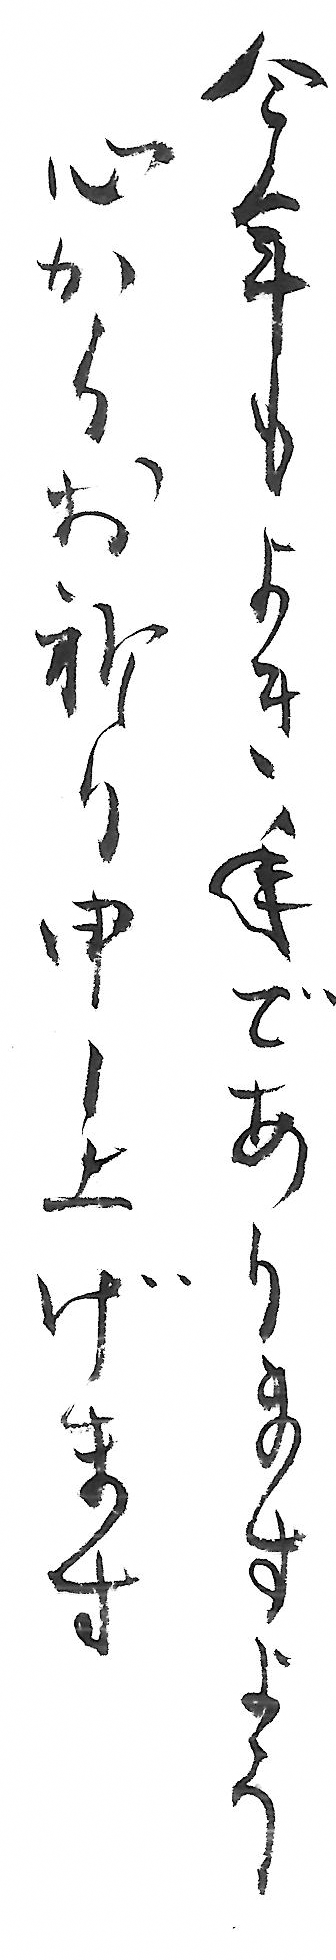 今年もよき年でありますよう
心からお祈り申し上げます